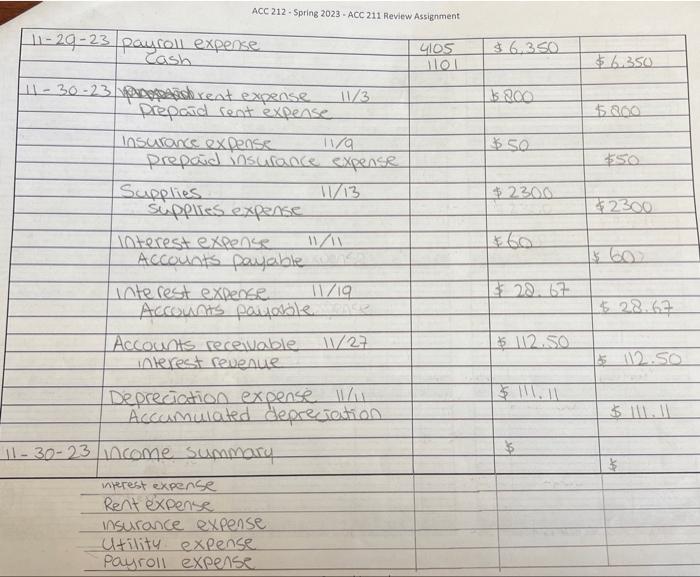 ACC 212 - Spring 2023 - ACC 211 Review Assignment
11-29-23 payroll expense 4105 $6,350
Cash 1101 $6,350
11-30-23 rent expense 11/3 $800
prepaid rent expense $800
Insurance expense 11/9 $50
prepaid insurance expense $50
Supplies 11/13 $2300
supplies expense $2300
Interest expense 11/11 $60
Accounts payable $60
interest expense 11/19 $28.67
Accounts payable $28.67
Accounts receivable 11/27 $112.50
interest revenue $112.50
Depreciation expense 11/11 $111.11
Accumulated depreciation $111.11
11-30-23 income summary $
$
interest expense
Rent expense
insurance expense
Utility expense
Payroll expense